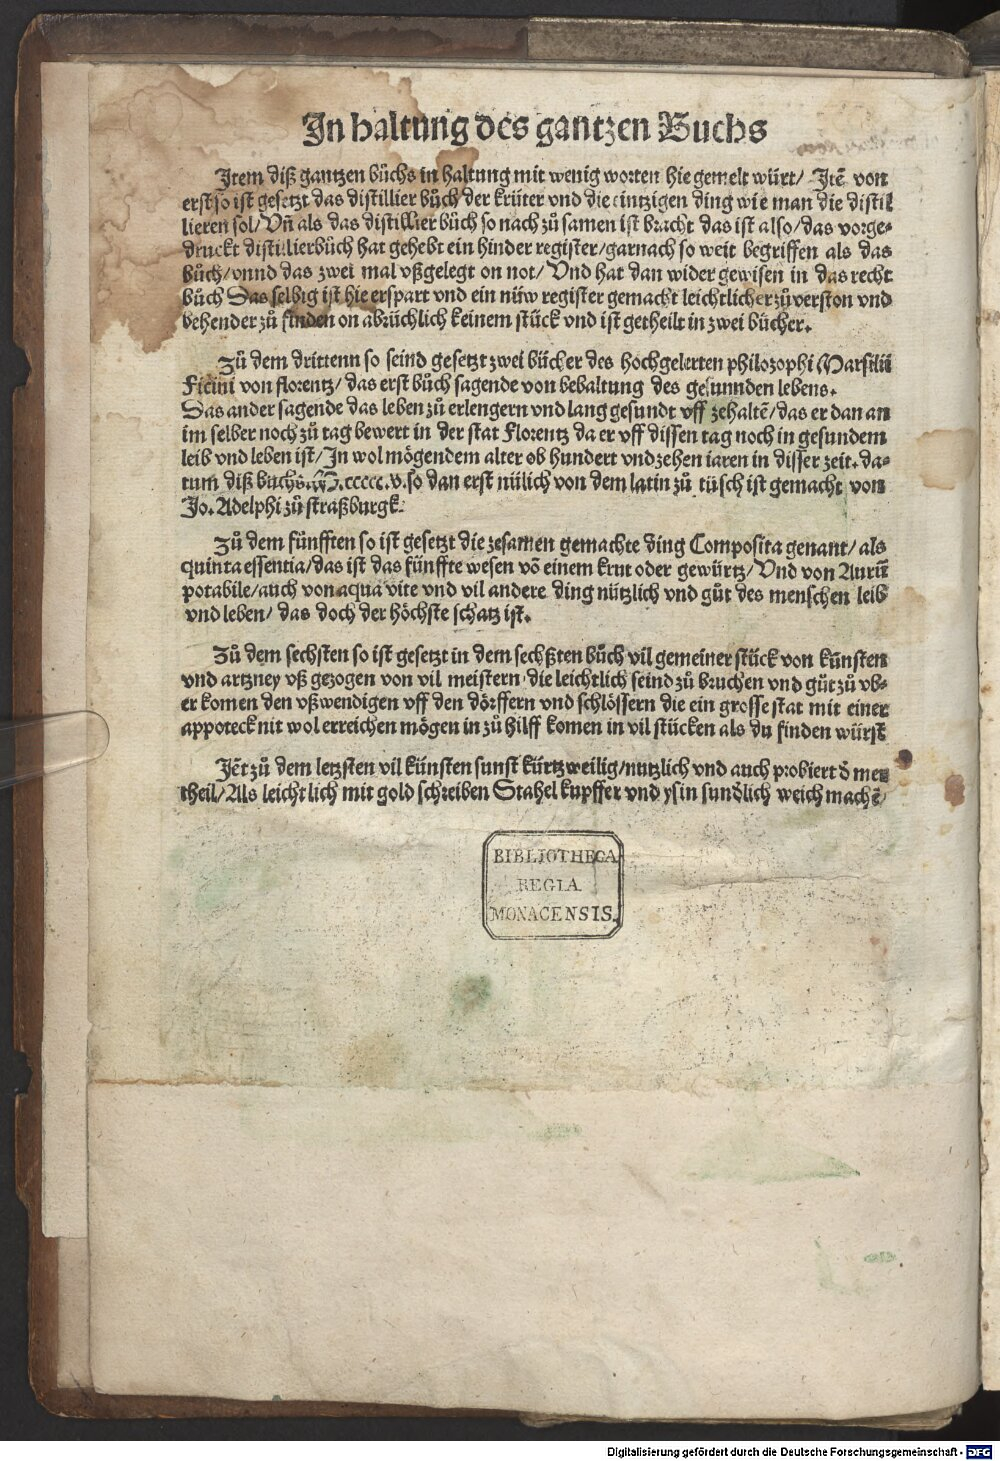 In haltung des gantzen Buchs
Item diß gantzen bůchs in haltung mit wenig worten hie gemelt würt/ Itē von
erst so ist gesetzt das distillier bůch der krüter vnd die eintzigen ding wie man die distil
lieren sol/ Vn̄ als das distillier bůch so nach zů samen ist bracht das ist also/ das vorge-
druckt distillierbůch hat gehebt ein hinder register/ garnach so weit begriffen als das
bůch/ vnnd das zwei mal vßgelegt on not/ Vnd hat dan wider gewisen in das recht
bůch Das selbig ist hie erspart vnd ein nüw register gemacht leichtlicher zůverston vnd
behender zů finden on abrüchlich keinem stück vnd ist getheilt in zwei bücher.
Zů dem drittenn so seind gesetzt zwei bücher des hochgelerten philozophi Marsilii
Ficini von florentz/ das erst bůch sagende von behaltung des gesunnden lebens.
Das ander sagende das leben zů erlengern vnd lang gesundt vff zehaltē/ das er dan an
im selber noch zů tag bewert in der stat Florentz da er vff dissen tag noch in gesundem
leib vnd leben ist/ In wol mögendem alter ob hundert vnd zehen iaren in disser zeit. da-
tum diß buchs M.ccccc.v. so dan erst nülich von dem latin zů tüsch ist gemacht von
Jo. Adelphi zů straßburgk.
Zů dem fünfften so ist gesetzt die zesamen gemachte ding Composita genant/ als
quinta essentia/ das ist das fünffte wesen vō einem krut oder gewürtz/ Vnd von Aurū
potabile/ auch von aqua vite vnd vil andere ding nützlich vnd gůt des menschen leib
vnd leben/ das doch der höchste schatz ist.
Zů dem sechsten so ist gesetzt in dem sechßten bůch vil gemeiner stück von künsten
vnd artzney vß gezogen von vil meistern die leichtlich seind zů bruchen vnd gůt zů vb-
er komen den vßwendigen vff den dörffern vnd schlössern die ein grosse stat mit einer
appoteck nit wol erreichen mögen in zů hilff komen in vil stücken als du finden würst
Jēt zů dem letzsten vil künsten sunst kürtzweilig/ nutzlich vnd auch probiert d̄ mer
theil/ Als leichtlich mit gold schreiben Stahel kupffer vnd ysin sundlich weich machē/
BIBLIOTHECA
REGIA
MONACENSIS.
Digitalisierung gefördert durch die Deutsche Forschungsgemeinschaft - DFG